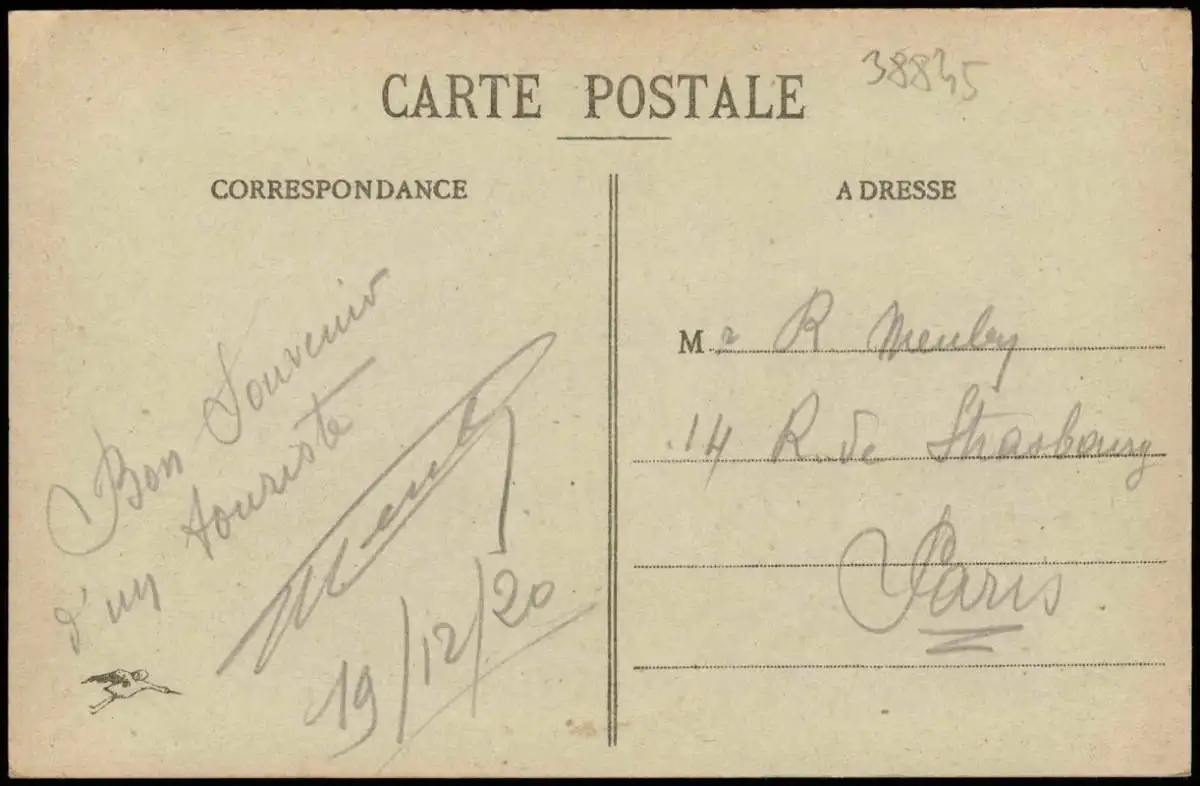 CARTE POSTALE
38845
CORRESPONDANCE
Bon Souvenir
d'un touriste
19/12/20
ADRESSE
Mr R
14 R. de Strasbourg
Paris